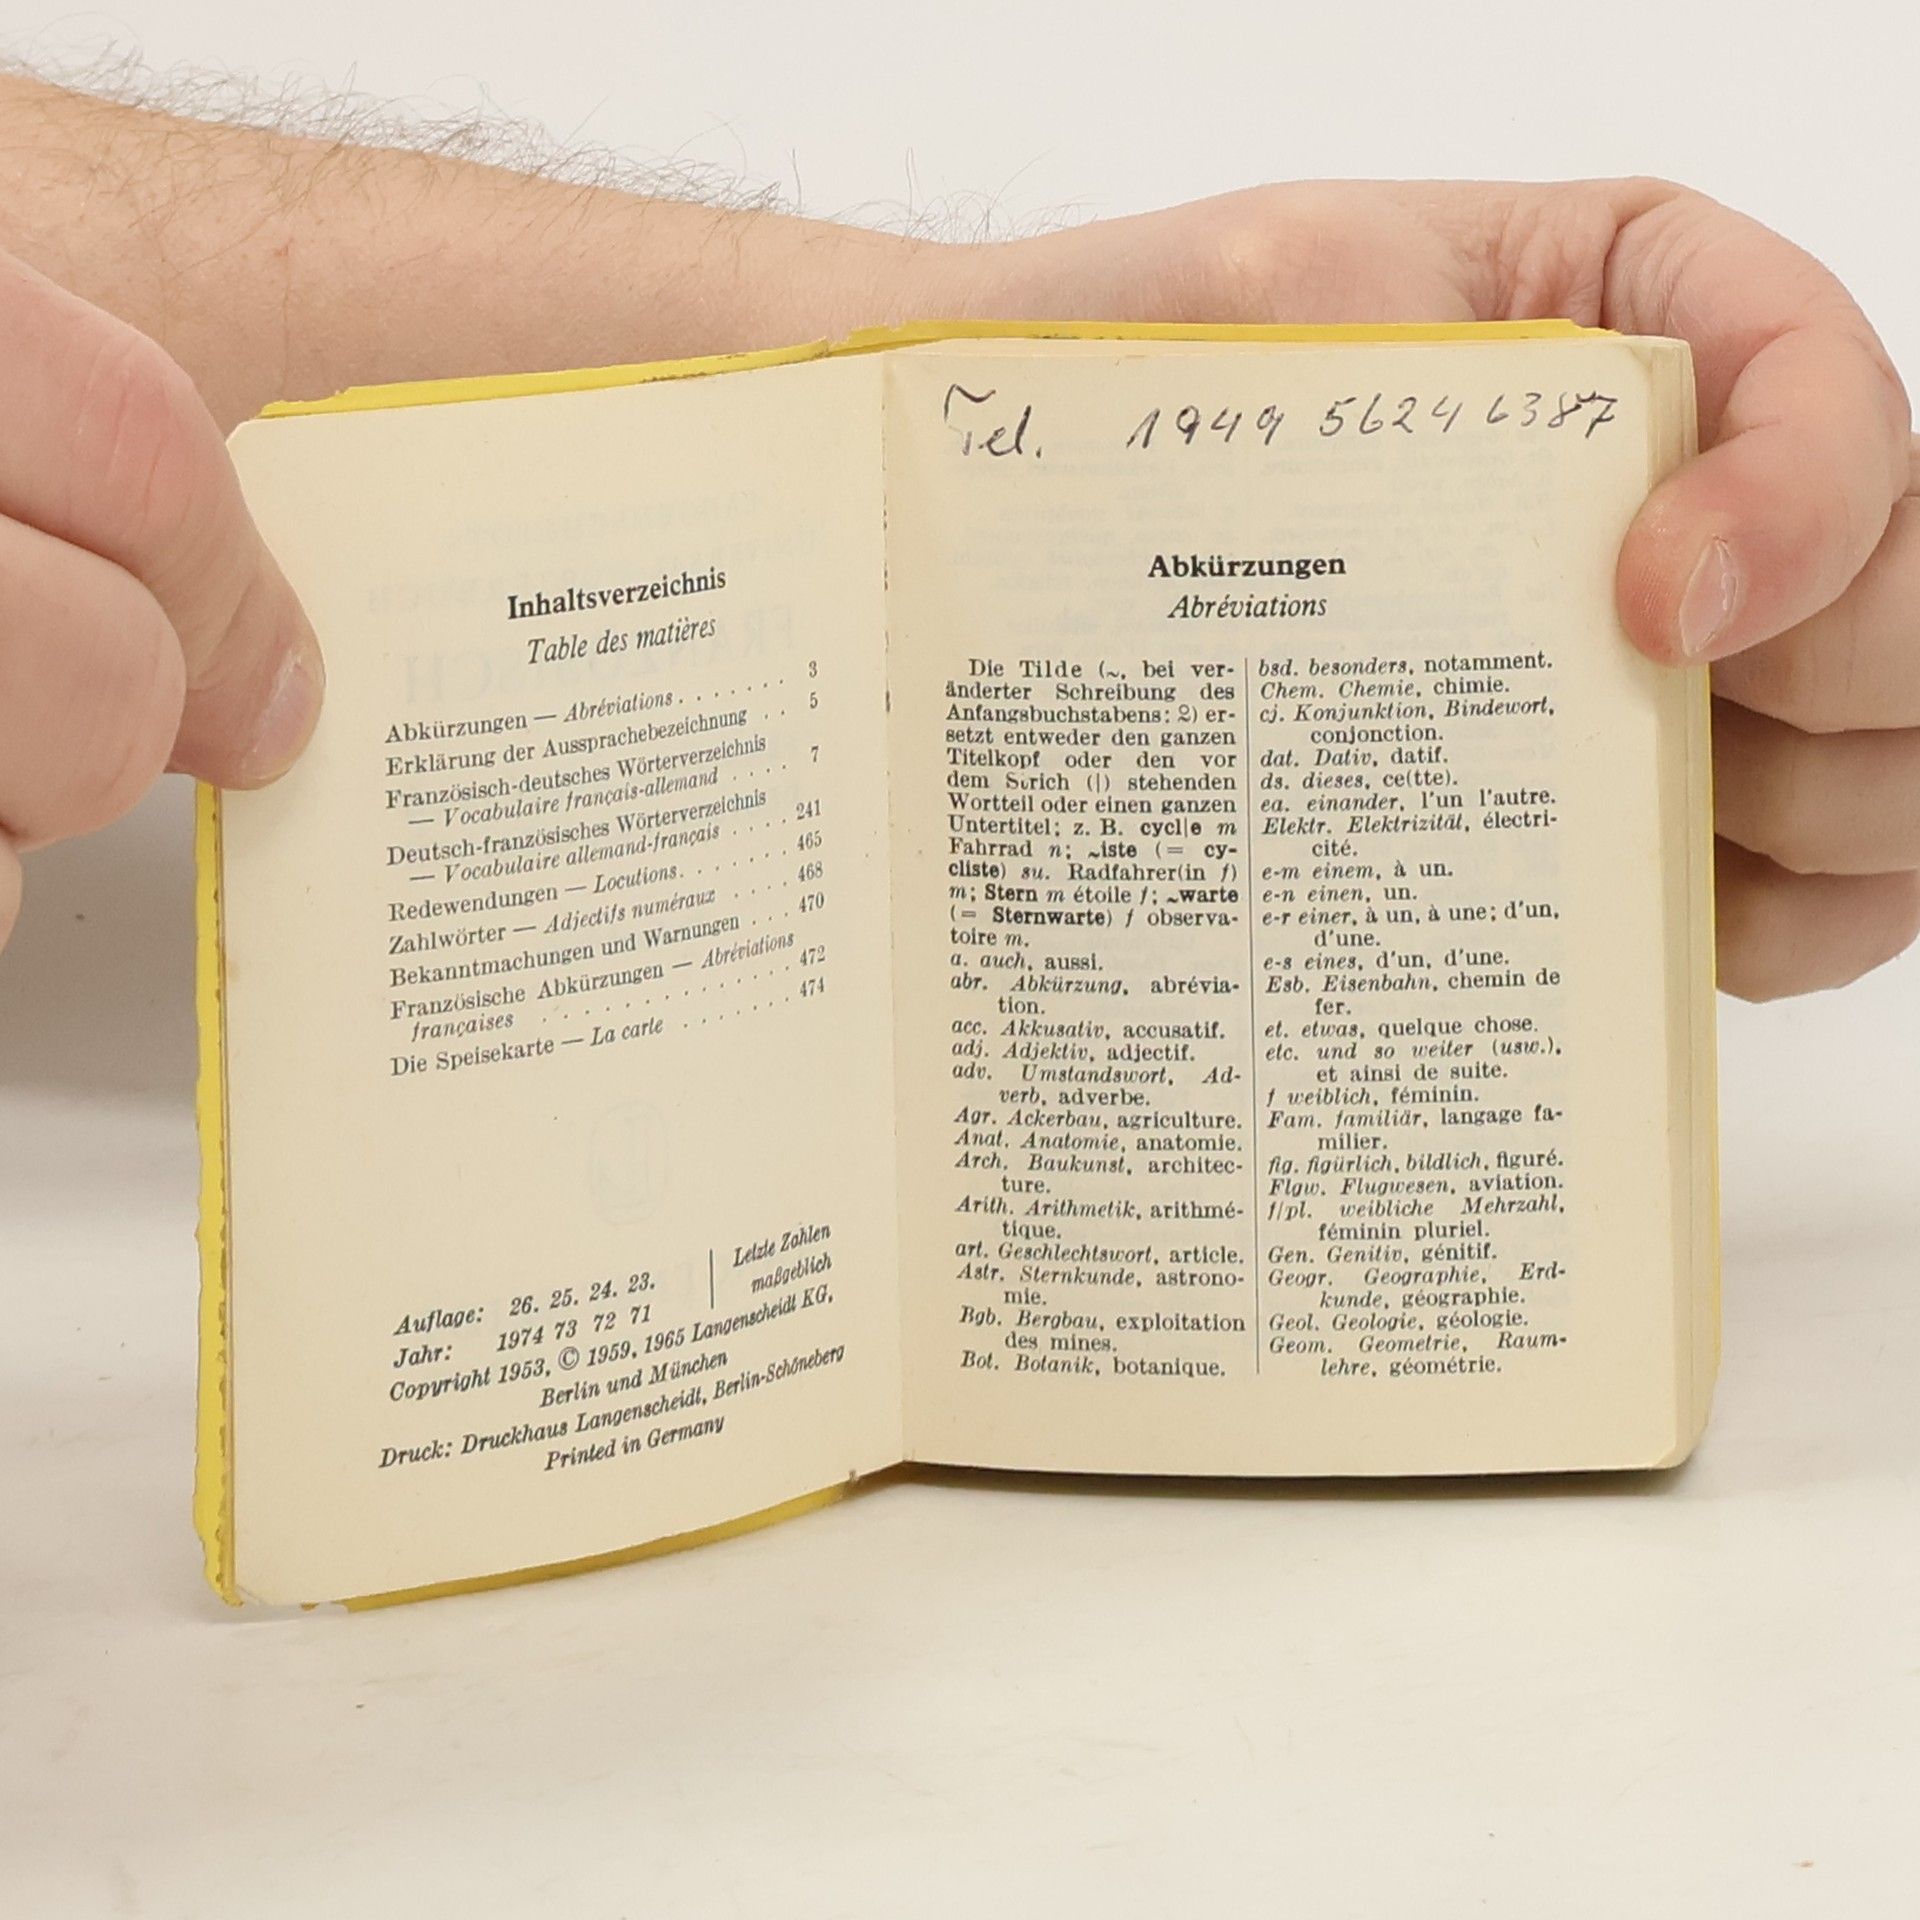 Inhaltsverzeichnis
Table des matières
Abkürzungen — Abréviations . . . . . . . 3
Erklärung der Aussprachebezeichnung . . 5
Französisch-deutsches Wörterverzeichnis
— Vocabulaire français-allemand . . . . 7
Deutsch-französisches Wörterverzeichnis
— Vocabulaire allemand-français . . . . 241
Redewendungen — Locutions. . . . . . . 465
Zahlwörter — Adjectifs numéraux . . . . 468
Bekanntmachungen und Warnungen . . . 470
Französische Abkürzungen — Abréviations
françaises . . . . . . . . . . . 472
Die Speisekarte — La carte . . . . . . . 474
Auflage: 26. 25. 24. 23. | Letzte Zahlen
Jahr: 1974 73 72 71 | maßgeblich
Copyright 1953, © 1959, 1965 Langenscheidt KG,
Berlin und München
Druck: Druckhaus Langenscheidt, Berlin-Schöneberg
Printed in Germany
Tel. 1949 5624 6387
Abkürzungen
Abréviations
Die Tilde (~, bei ver-
änderter Schreibung des
Anfangsbuchstabens: 2) er-
setzt entweder den ganzen
Titelkopf oder den vor
dem Strich (|) stehenden
Wortteil oder einen ganzen
Untertitel; z. B. cycl|e m
Fahrrad n; ~iste (= cy-
cliste) su. Radfahrer(in f)
m; Stern m étoile f; ~warte
(= Sternwarte) f observa-
toire m.
a. auch, aussi.
abr. Abkürzung, abrévia-
tion.
acc. Akkusativ, accusatif.
adj. Adjektiv, adjectif.
adv. Umstandswort, Ad-
verb, adverbe.
Agr. Ackerbau, agriculture.
Anat. Anatomie, anatomie.
Arch. Baukunst, architec-
ture.
Arith. Arithmetik, arithmé-
tique.
art. Geschlechtswort, article.
Astr. Sternkunde, astrono-
mie.
Bgb. Bergbau, exploitation
des mines.
Bot. Botanik, botanique.
bsd. besonders, notamment.
Chem. Chemie, chimie.
cj. Konjunktion, Bindewort,
conjonction.
dat. Dativ, datif.
ds. dieses, ce(tte).
ea. einander, l'un l'autre.
Elektr. Elektrizität, électri-
cité.
e-m einem, à un.
e-n einen, un.
e-r einer, à un, à une; d'un,
d'une.
e-s eines, d'un, d'une.
Esb. Eisenbahn, chemin de
fer.
et. etwas, quelque chose.
etc. und so weiter (usw.),
et ainsi de suite.
f weiblich, féminin.
Fam. familiär, langage fa-
milier.
fig. figürlich, bildlich, figuré.
Flgw. Flugwesen, aviation.
f/pl. weibliche Mehrzahl,
féminin pluriel.
Gen. Genitiv, génitif.
Geogr. Geographie, Erd-
kunde, géographie.
Geol. Geologie, géologie.
Geom. Geometrie, Raum-
lehre, géométrie.